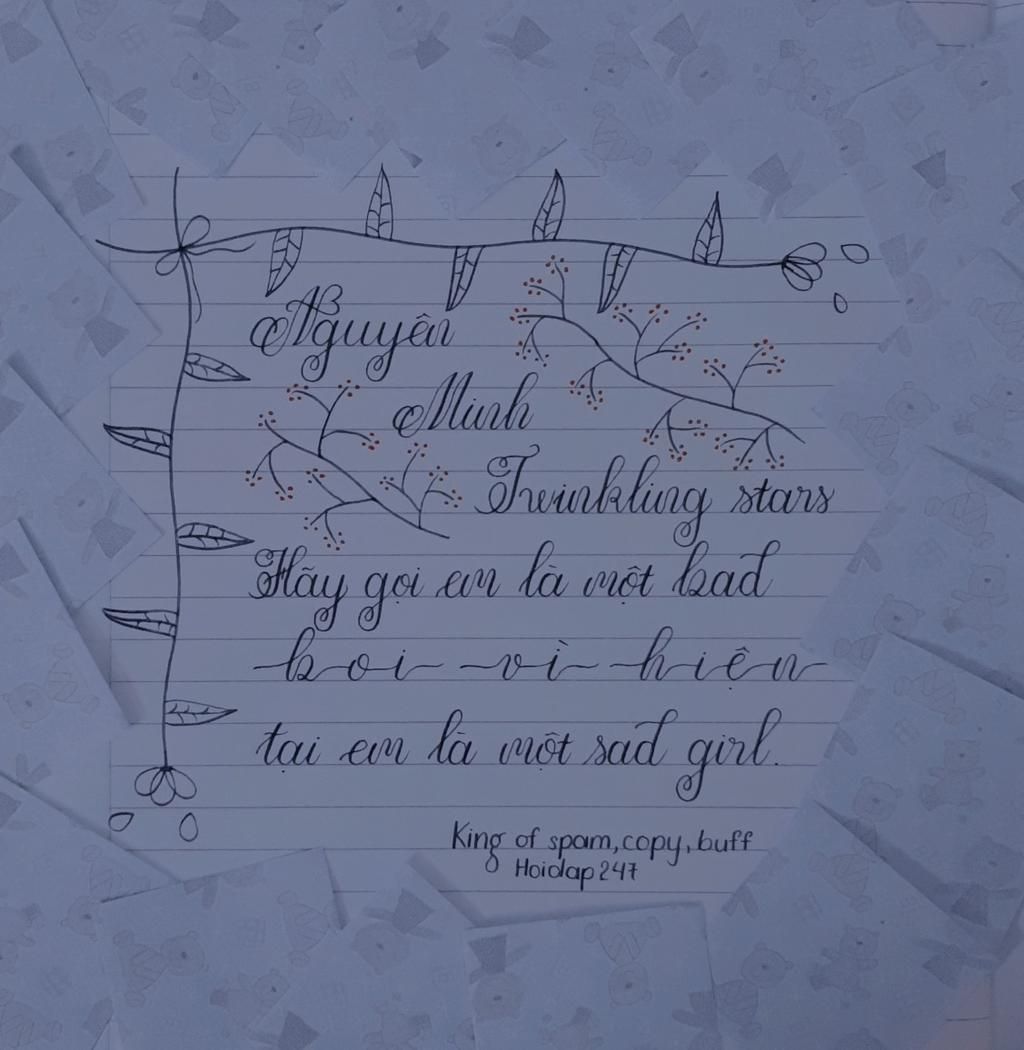 Nguyên
Minh
Twinkling stars
Hãy gọi em là một bad
boi vì hiện
tại em là một sad girl.
King of spam, copy, buff
Hoidap247